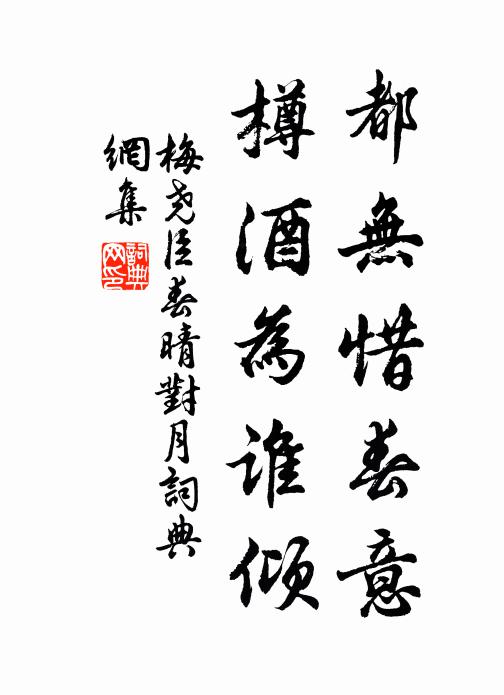 都無惜春意
樽酒為誰傾
梅堯臣春晴對月詞典
網集
詞典网印